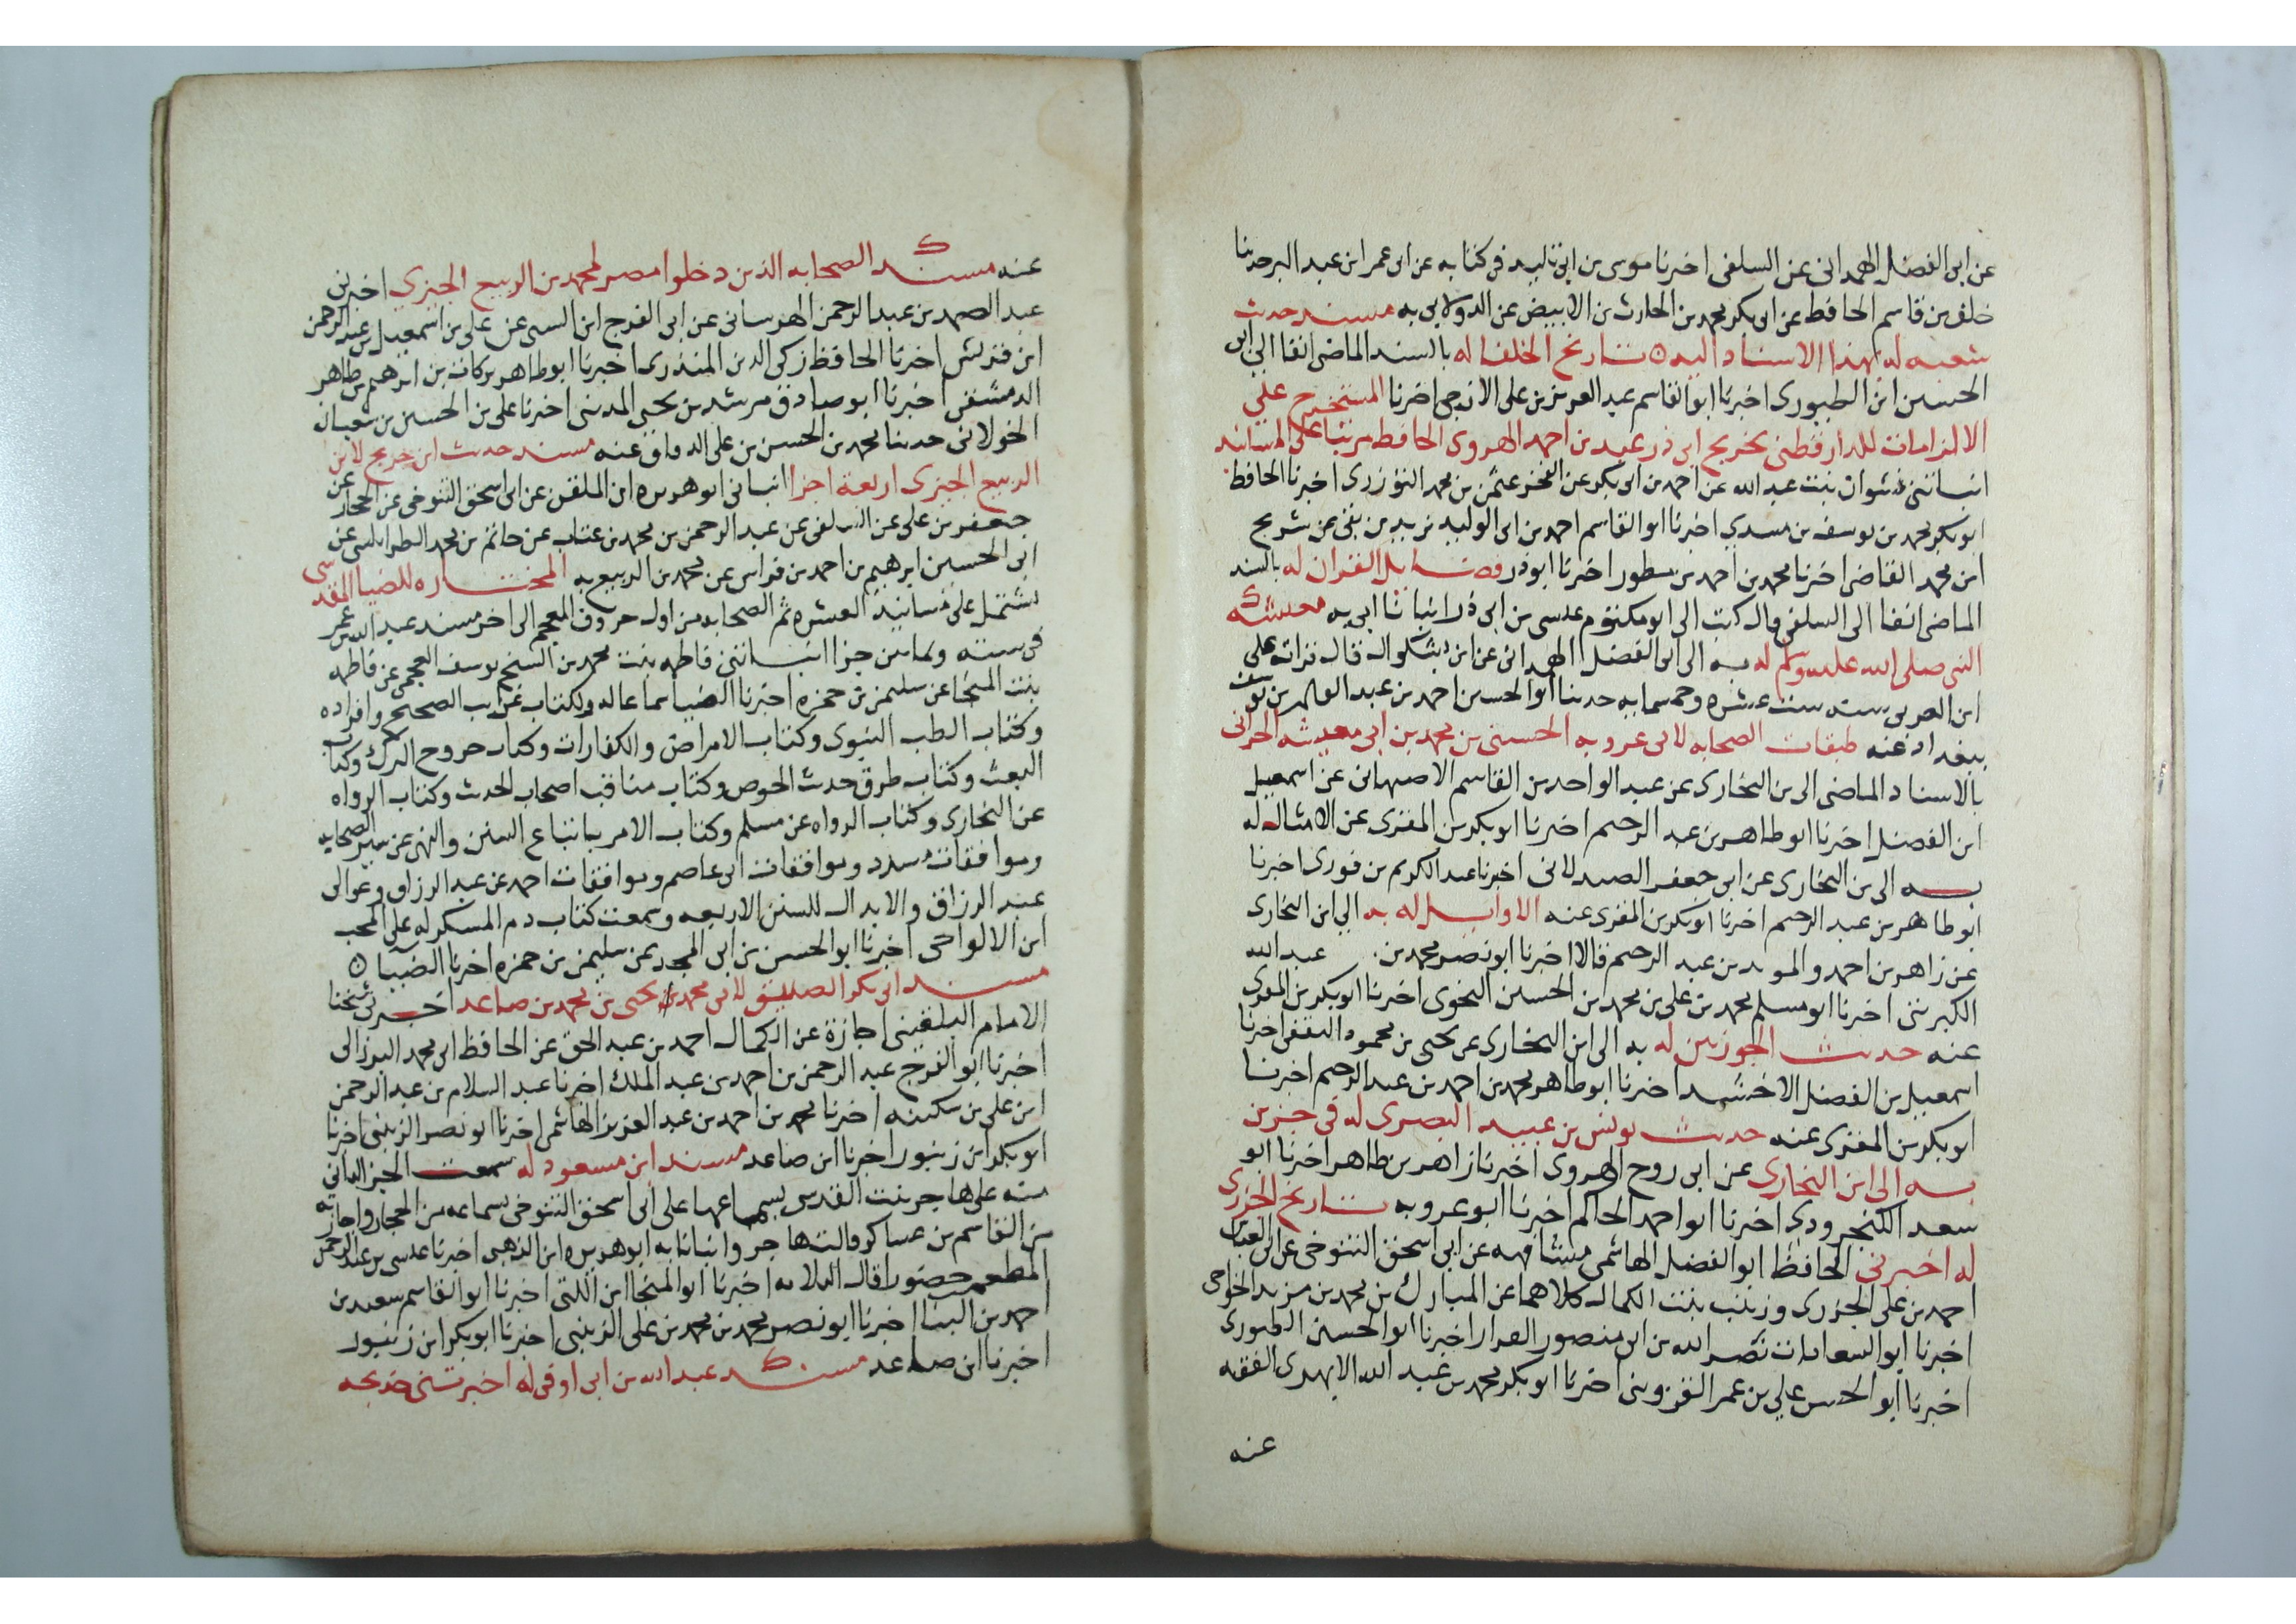 عن ابى الفضل الهمدانى عن السلفى اخبرنا موسى بن ابى تليد فى كتابه عن ابى عمر ابن عبد البر حدثنا
خلف بن قاسم الحافظ عن ابى بكر محمد بن الحارث بن الابيض عن الدولابى به مسند حديث
شعبه له بهذا الاسناد اليه تاريخ الخلفا له بالسند الماضى انفا الى ابى
الحسين ابن الطيورى اخبرنا ابو القاسم عبد العزيز بن على الازجى اخبرنا المستخرج على
الالزامات للدارقطنى تخريج ابى ذر عبد بن احمد الهروى الحافظ مرتبا على المسانيد
انبأتنى نشوان بنت عبد الله عن احمد بن ابى بكر عن الفخر عثمن بن محمد التوزرى اخبرنا الحافظ
ابو بكر محمد بن يوسف بن مسدي اخبرنا ابو القاسم احمد بن ابى الوليد يزيد بن بقى عن شريح
ابن محمد القاضى اخبرنا محمد بن احمد بن منظور اخبرنا ابو ذر فضايل القران له بالسند
الماضى انفا الى السلفى قال كتب الى ابو مكتوم عيسى بن ابى ذر انبانا ابى به معيشة
النبى صلى الله عليه وسلم له به الى ابى الفضل الهمدانى عن ابن بشكوال قال قرات على
ابن العربى سنه ست عشره وخمسمايه حدثنا ابو الحسين احمد بن عبد القادر بن يوسف
ببغداد عنه طبقات الصحابه لابى عروبه الحسين بن محمد بن ابى معشر الحرانى
بالاسناد الماضى الى بن البخارى عن عبد الواحد بن القاسم الاصبهانى عن اسمعيل
ابن الفضل اخبرنا ابو طاهر بن عبد الرحيم اخبرنا ابو بكر بن المقرى عن الامثال له
به الى بن البخارى عن ابى جعفر الصيدلانى اخبرنا عبد الكريم بن فورى اخبرنا
ابو طاهر بن عبد الرحيم اخبرنا ابو بكر بن المقرى عنه الاوايل له به الى ابن البخارى
عن زاهر بن احمد والمويد بن عبد الرحيم قالا اخبرنا ابو نصر محمد بن عبد الله
الكبريتى اخبرنا ابو مسلم محمد بن على بن محمد بن الحسين النحوى اخبرنا ابو بكر بن المقرى
عنه حديث الجوزيين له به الى ابن البخارى عن يحيى بن محمود الثقفى اخبرنا
اسمعيل بن الفضل الاخشيد اخبرنا ابو طاهر محمد بن احمد بن عبد الرحيم اخبرنا
ابو بكر بن المقرى عنه حديث يونس بن عبيد البصرى له فى جزين
به الى ابن البخارى عن ابى روح الهروى اخبرنا زاهر بن طاهر اخبرنا ابو
سعد الكنجرودى اخبرنا ابو احمد الحاكم اخبرنا ابو عروبه تاريخ الجزرى
له اخبرنى الحافظ ابو الفضل الهاشمى مشافهه عن ابى اسحق التنوخى عن ابى العباس
احمد بن على الجزرى وزينب بنت الكمال كلاهما عن المبارك بن محمد بن مزيد الخواص
اخبرنا ابو السعادات نصر الله بن ابى منصور القزاز اخبرنا ابو الحسين الطيورى
اخبرنا ابو الحسن على بن عمر القزوينى اخبرنا ابو بكر محمد بن عبد الله الابهرى الفقيه
عنه
عنه مسند الصحابه الذين دخلوا مصر لمحمد بن الربيع الجيزى اخبرنى
عبد الصمد بن عبد الرحمن الهرسانى عن ابى الفرج ابن السى عن على بن اسمعيل بن عبد الرحمن
ابن قريش اخبرنا الحافظ زكى الدين المنذرى اخبرنا ابو طاهر بركات بن ابرهيم بن طاهر
الدمشقى اخبرنا ابو صادق مرشد بن يحيى المدينى اخبرنا على بن الحسين بن شعبان
الخولانى حدثنا محمد بن الحسن بن على الدقاق عنه مسند حديث ابن جريج لابن
الربيع الجيزى اربعة اجزا انبانى ابو هريره ابن الملقن عن ابى اسحق التنوخى عن الحجار عن
جعفر بن على عن السلفى عن عبد الرحمن بن محمد بن عتاب عن حاتم بن محمد الطرابلسى عن
ابى الحسين ابرهيم بن احمد بن فراس عن محمد بن الربيع به المختاره للضيا المقدسى
يشتمل على مسانيد العشره ثم الصحابه من اول حروف المعجم الى اخر مسند عبد الله بن عمر
فى سته وثمانين جزا انبأتنى فاطمه بنت محمد بن الشيخ يوسف العجمى عن فاطمه
بنت المنجا عن سليمن بن حمزه اخبرنا الضيا سماعا له ولكتاب غرايب الصحيح وافراده
وكتاب الطب النبوى وكتاب الامراض والكفارات وكتاب خروج الترك وكتاب
البعث وكتاب طرق حديث الحوض وكتاب مناقب اصحاب الحديث وكتاب الرواه
عن البخارى وكتاب الرواه عن مسلم وكتاب الامر باتباع السنن والنهى عن سب الصحابه
وموافقات مسدد وموافقات ابى عاصم وموافقات احمد عن عبد الرزاق وعوالى
عبد الرزاق والابدال للسنن الاربعه وسمعت كتاب ذم المسكر له على المحب
ابن الالواحى اخبرنا ابو الحسن بن ابى المجد عن سليمن بن حمزه اخبرنا الضيا
مسند ابى بكر الصديق لابى محمد يحيى بن محمد بن صاعد اخبرنى شيخنا
الامام البلقينى اجازة عن الكمال احمد بن عبد الحق عن الحافظ ابى محمد البرزالى
اخبرنا ابو الفرج عبد الرحمن بن احمد بن عبد الملك اخبرنا عبد السلام بن عبد الرحمن
ابن على بن سكينه اخبرنا محمد بن احمد بن عبد العزيز الهاشمى اخبرنا ابو نصر الزينبى اخبرنا
ابو بكر ابن زنبور اخبرنا ابن صاعد مسند ابن مسعود له سمعت الجز الثانى
منه على هاجر بنت القدسى بسماعها على ابى اسحق التنوخى بسماعه من الحجار واجازته
من القاسم بن عساكر قالت هاجر وانبانا به ابو هريره ابن الذهبى اخبرنا عيسى بن عبد الرحمن
المطعم حضورا قال الثلاثه اخبرنا ابو المنجا ابن اللتى اخبرنا ابو القاسم سعيد بن
احمد بن البنا اخبرنا ابو نصر محمد بن محمد بن على الزينبى اخبرنا ابو بكر ابن زنبور
اخبرنا ابن صاعد مسند عبد الله بن ابى اوفى له اخبرتنى خديجه